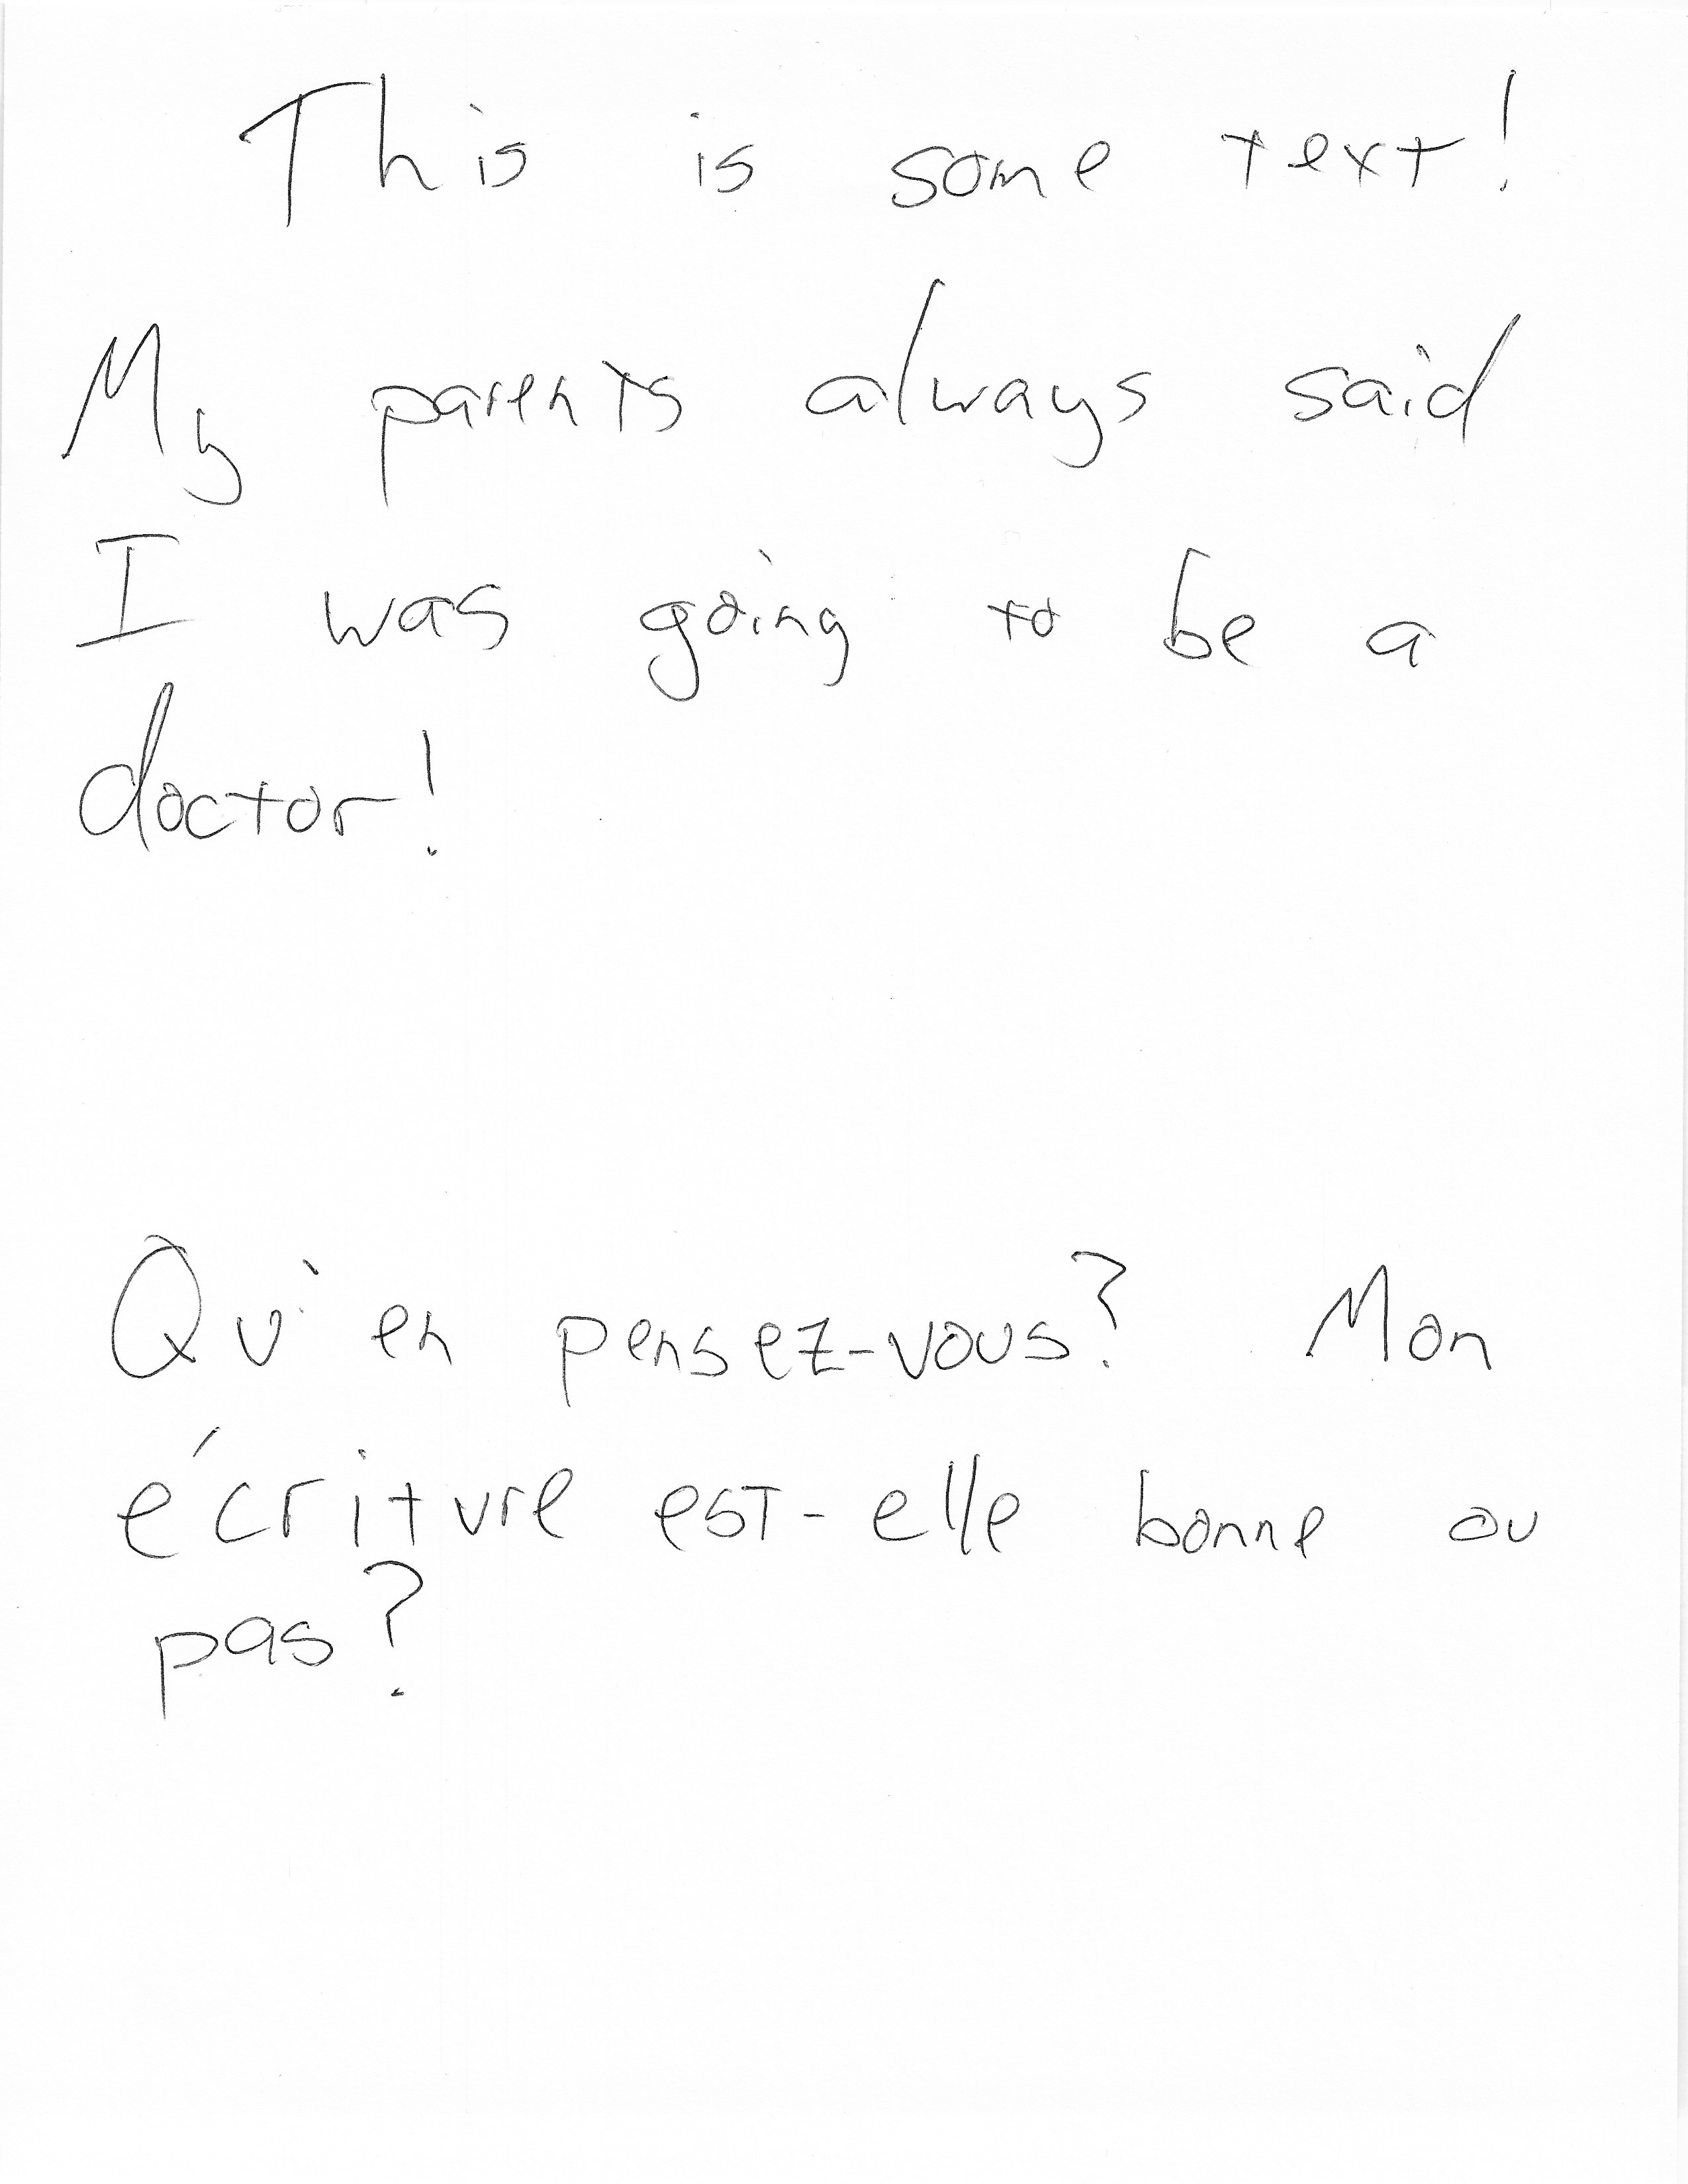 This is some text!
My parents always said
I was going to be a
doctor!
Qu'en pensez-vous? Mon
écriture est-elle bonne ou
pas?